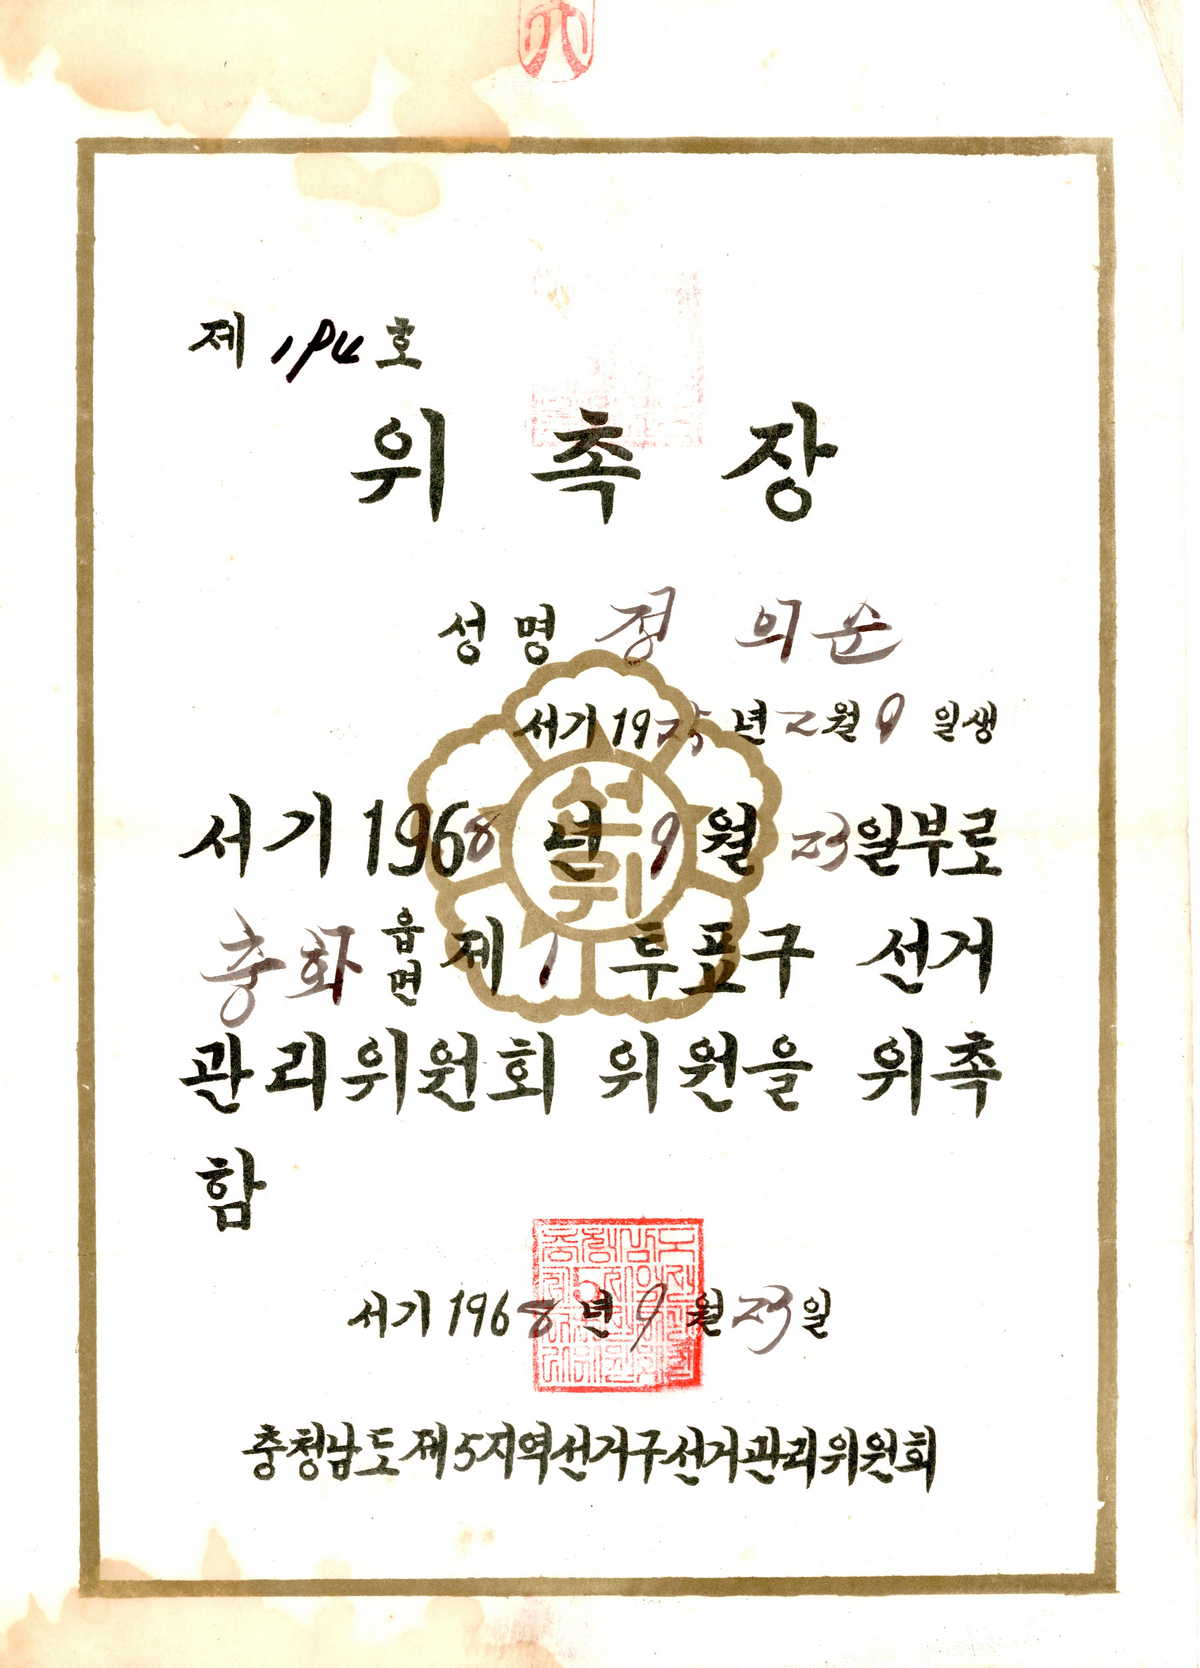 제 194 호
위 촉 장
성명 정 의순
서기 1925년 2월 9일생
서기 1968년 9월 23일부로
충화 읍면 제 1 투표구 선거
관리위원회 위원을 위촉
함
선위
서기 1968년 9월 23일
충청남도제5지역선거구선거관리위원회